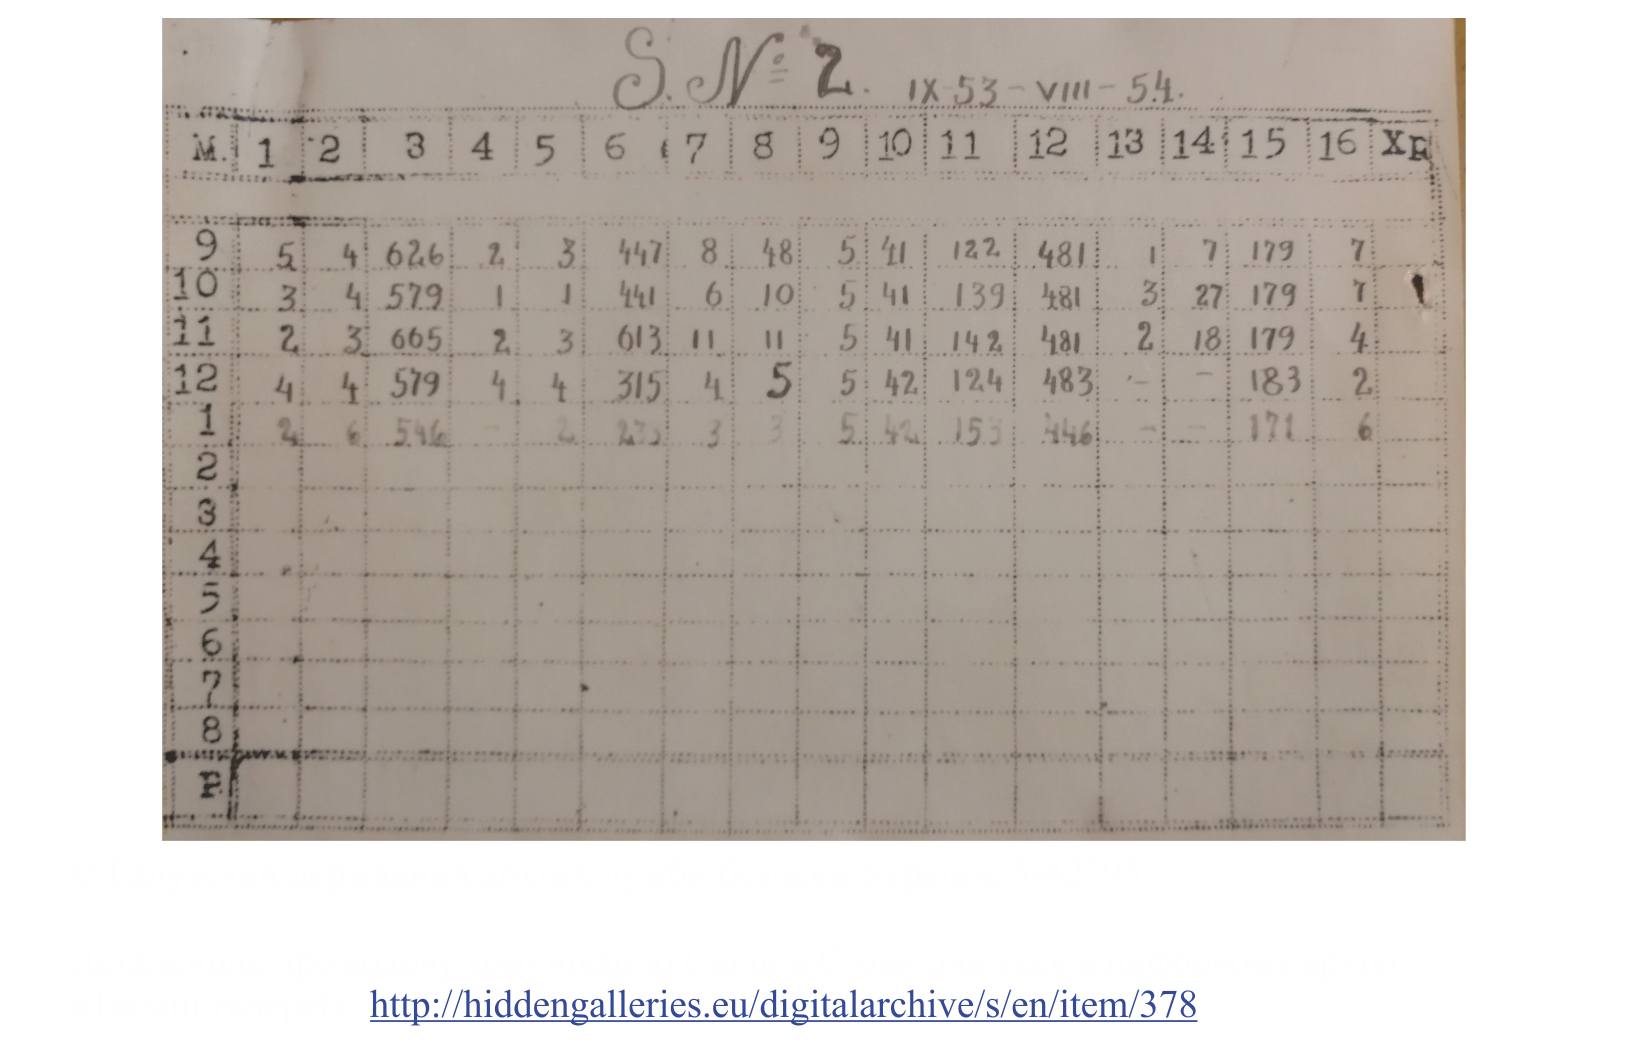 S. № 2. IX-53-VIII-54.
M. 1 2 3 4 5 6 7 8 9 10 11 12 13 14 15 16 XP
9 5 4 626 2 3 447 8 48 5 41 122 481 1 7 179 7
10 3 4 579 1 1 441 6 10 5 41 139 481 3 27 179 7
11 2 3 665 2 3 613 11 11 5 41 142 481 2 18 179 4
12 4 4 579 4 4 315 4 5 5 42 124 483 - - 183 2
1 2 6 546 - 2 3 3 5 42 153 446 - - 171 6
2
3
4
5
6
7
8
http://hiddengalleries.eu/digitalarchive/s/en/item/378